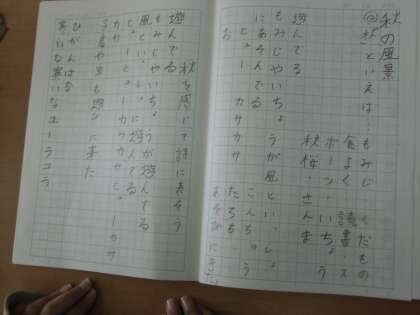 秋の風景
@秋といえば
もみじ くだもの
食よく 読書 ス
ポーツ いちょう
秋桜 さんま
遊んでる
もみじやいちょうが風といっしょ
にあそんでる
ピュー カサカサ
お
こんちゅう
たちも
あそびにきた
秋を感じて詩に表そう
遊んでる
もみじやいちょうが遊んでる
風といっしょに遊んでる
ピューカサカサピューカサ
カサ
も遊びに来た
ひがんばな
ユーラユラ